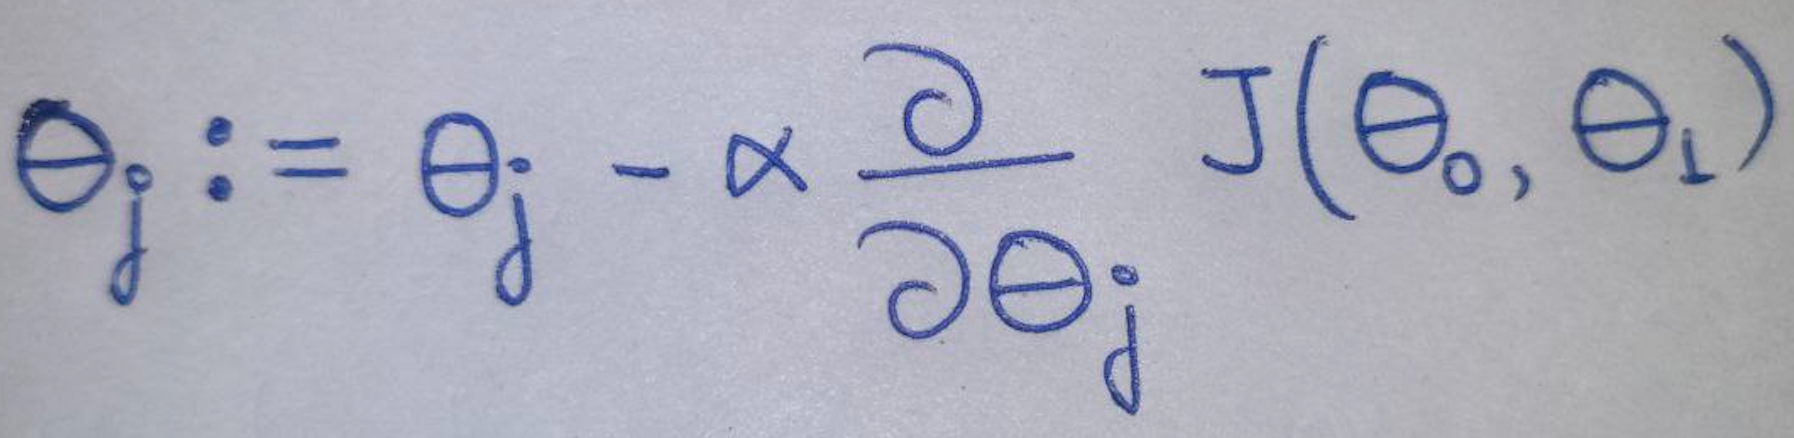 θj := θj - α ∂/∂θj J(θ0, θ1)